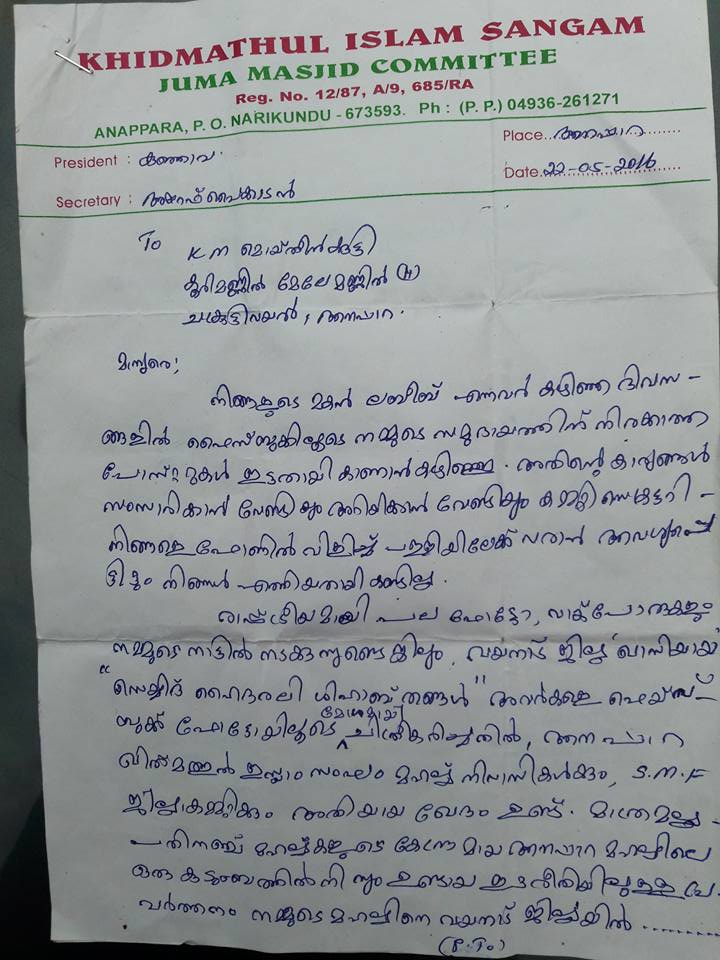 KHIDMATHUL ISLAM SANGAM
JUMA MASJID COMMITTEE
Reg. No. 12/87, A/9, 685/RA
ANAPPARA, P. O. NARIKUNDU - 673593. Ph : (P. P.) 04936-261271
President : കുഞ്ഞാവ
Place ആനപ്പാറ
Secretary : അഷ്റഫ് പൈക്കാടൻ
Date 22-05-2016
To
K M മൊയ്തീൻകുട്ടി
കുരിമണ്ണിൽ മേലേമണ്ണിൽ (H)
ചക്കുട്ടിവയൽ, ആനപ്പാറ.
മാന്യരെ,
നിങ്ങളുടെ മകൻ ലബീബ് എന്നവർ കഴിഞ്ഞ ദിവസ-
ങ്ങളിൽ ഫൈസ്ബുക്കിലൂടെ നമ്മുടെ സമുദായത്തിന് നിരക്കാത്ത
പോസ്റ്റുമുകൾ ഇടതായി കാണാൻ കഴിഞ്ഞു. അതിന്റെ കാര്യങ്ങൾ
സംസാരികാൻ വേണ്ടിയും അറിയിക്കാൻ വേണ്ടിയും കമ്മറ്റി സെക്രട്ടറി-
നിങ്ങളെ ഫോണിൽ വിളിച്ച് പള്ളിയിലേക്ക് വരാൻ ആവശ്യപ്പെ
ട്ടിട്ടും നിങ്ങൾ എത്തിയതായി കണ്ടില്ല.
രാഷ്ട്രീയമായി പല ഫോട്ടോ, വാക്പോരുകളും
നമ്മുടെ നാട്ടിൽ നടക്കുന്നുണ്ടെങ്കിലും, വയനാട് ജില്ല ഖാസിയായ
"സെയ്യിദ് ഹൈദരലി ശിഹാബ് തങ്ങൾ" അവർകളെ ഫെയ്സ്-
ബുക്ക് ഫോട്ടോയിലൂടെ മോശമായി ചിത്രീകരിച്ചതിൽ, ആനപ്പാറ
ഖിദ്മത്തുൽ ഇസ്ലാം സംഘം മഹല്ല് നിവാസികൾക്കും, S.M.F
ജില്ലാകമ്മിക്കും അതിയായ ഖേദം ഉണ്ട്. മാത്രമല്ല-
പതിനഞ്ച് മഹല്ലുകളുടെ കേന്ദ്രമായ ആനപ്പാറ മഹല്ലിലെ
ഒരു കുടുംബത്തിൽ നിന്നും ഉണ്ടായ ഇത്തരീതിയിലുള്ള പ്ര-
വർത്തനം നമ്മുടെ മഹല്ലിനെ വയനാട് ജില്ലയിൽ ............
(P.T.O)